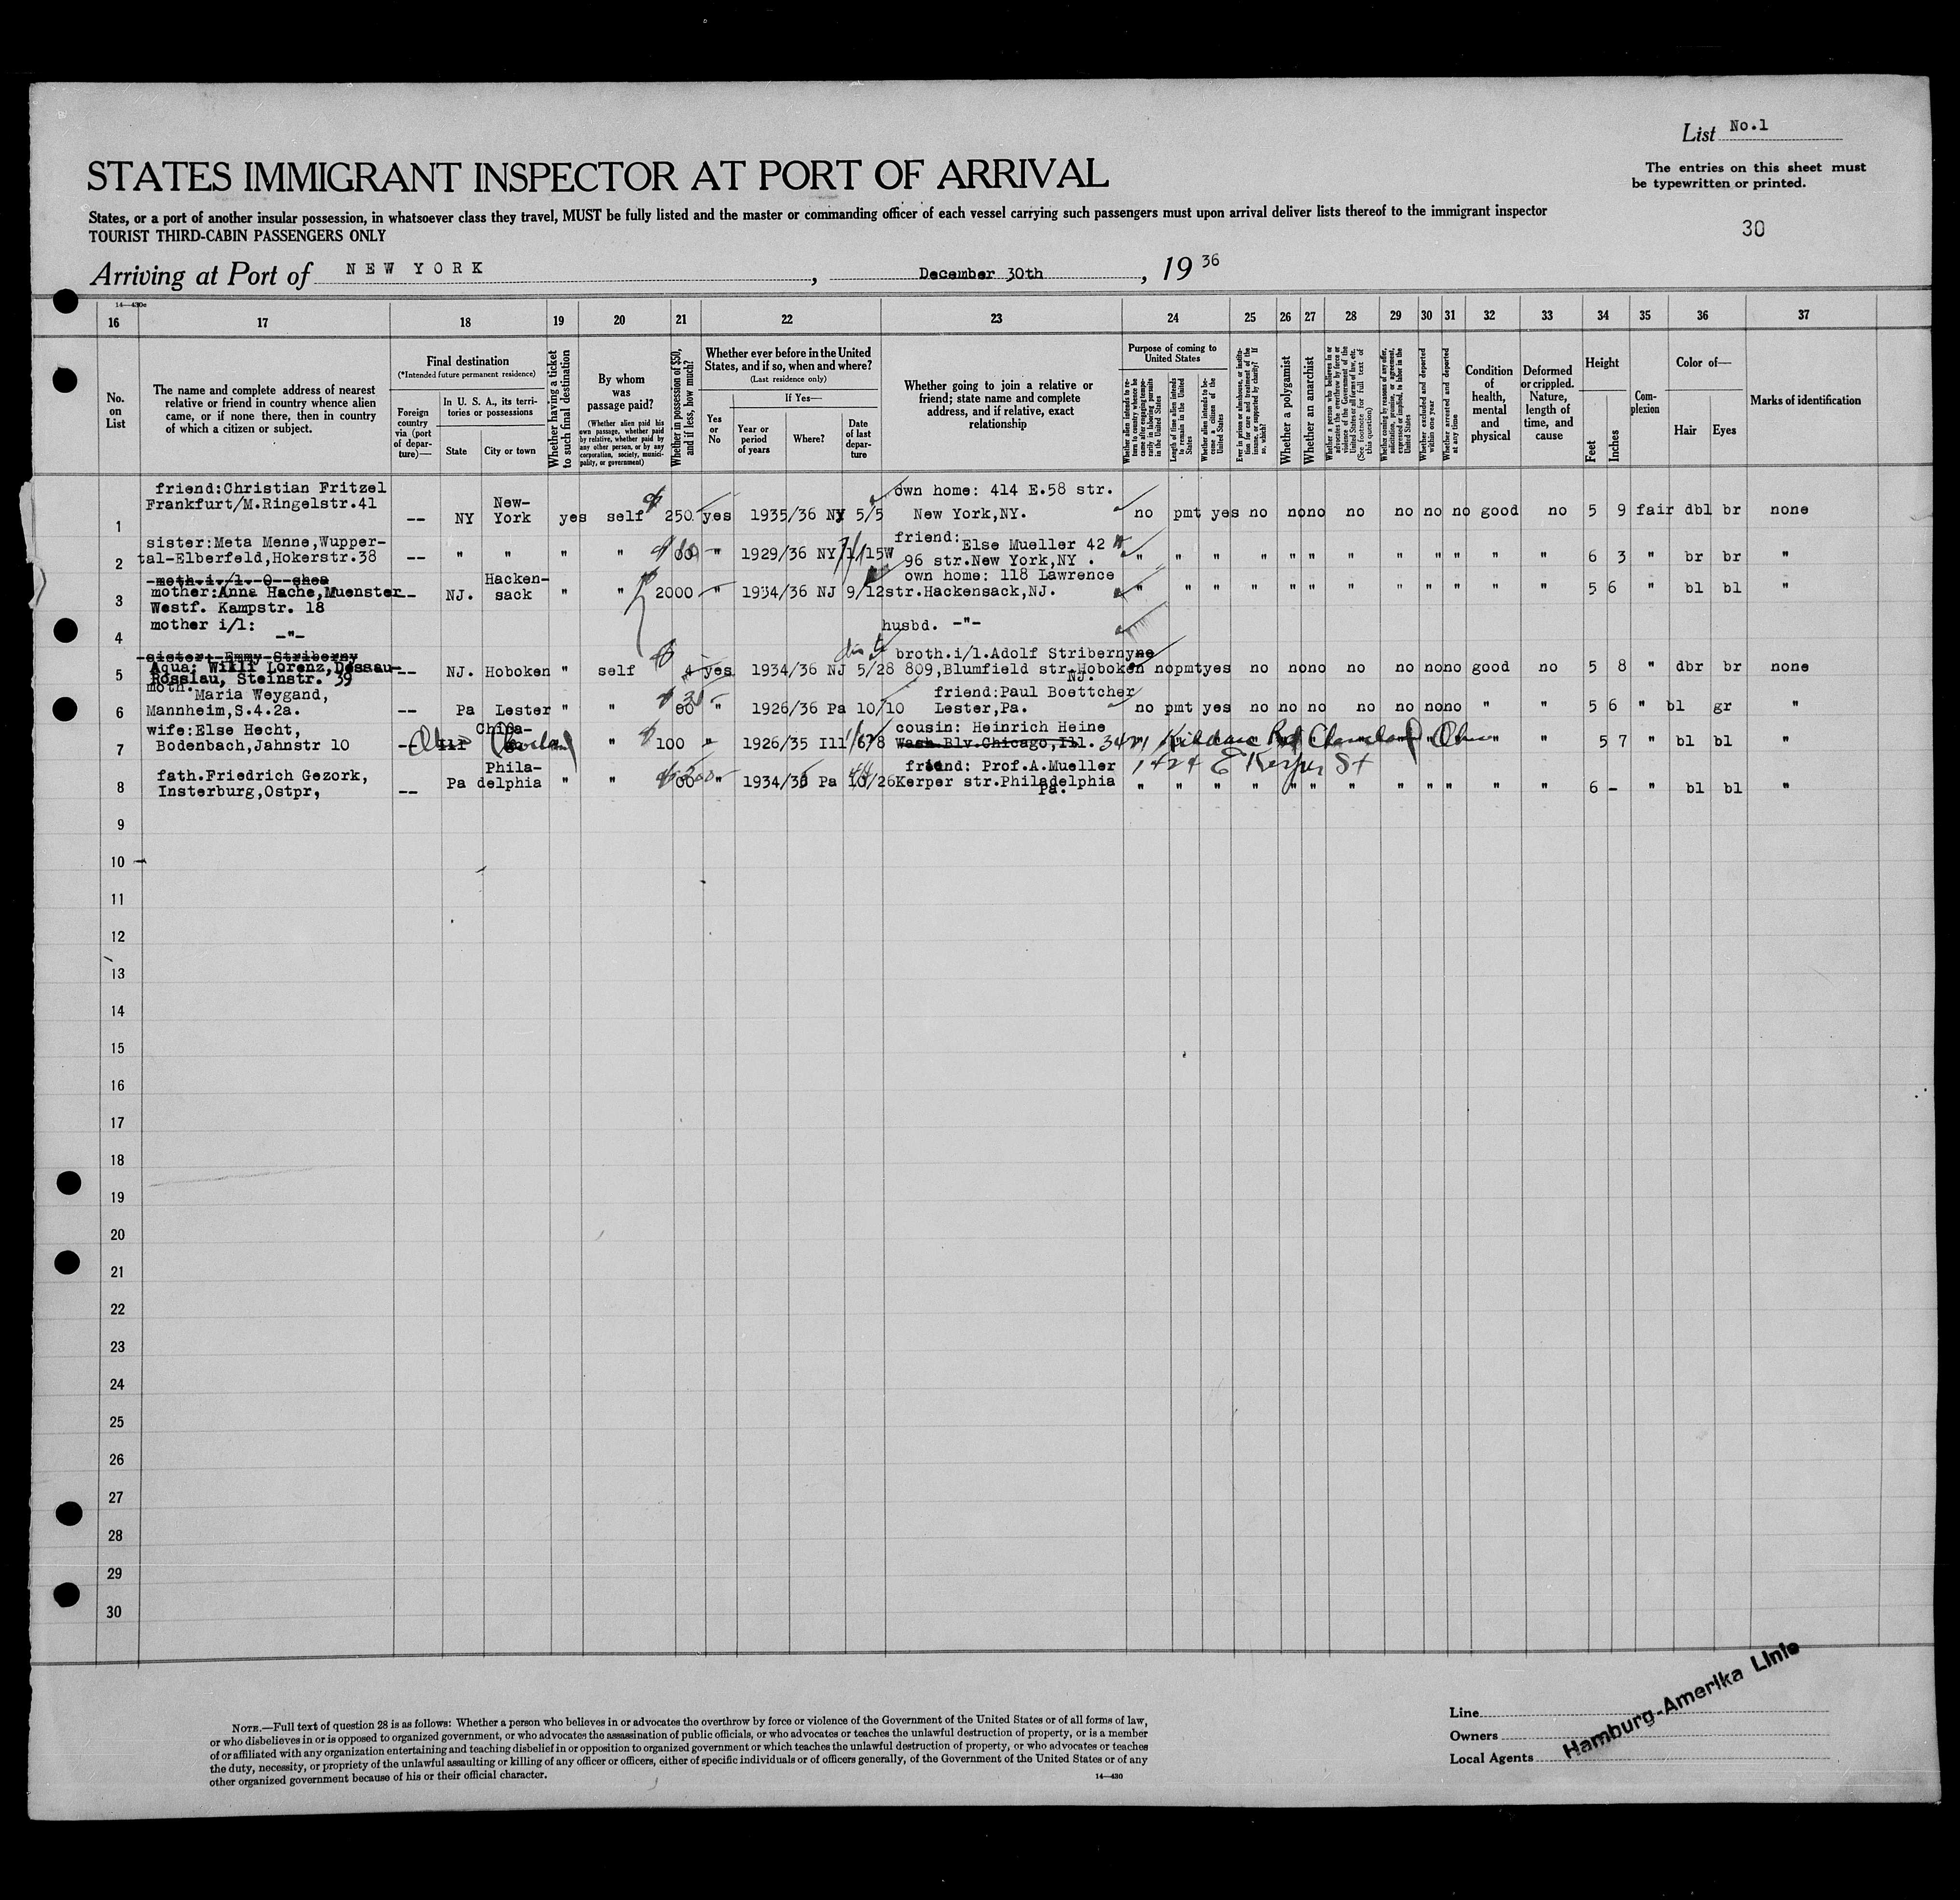 List No.1
STATES IMMIGRANT INSPECTOR AT PORT OF ARRIVAL
The entries on this sheet must
be typewritten or printed.
States, or a port of another insular possession, in whatsoever class they travel, MUST be fully listed and the master or commanding officer of each vessel carrying such passengers must upon arrival deliver lists thereof to the immigrant inspector
TOURIST THIRD-CABIN PASSENGERS ONLY
30
Arriving at Port of NEW YORK, December 30th, 19 36
16 17 18 19 20 21 22 23 24 25 26 27 28 29 30 31 32 33 34 35 36 37
No. on List
The name and complete address of nearest relative or friend in country whence alien came, or if none there, then in country of which a citizen or subject.
Final destination
(*Intended future permanent residence)
Foreign country via (port of departure)—
In U. S. A., its territories or possessions
State
City or town
Whether having a ticket to such final destination
By whom was passage paid?
(Whether alien paid his own passage, whether paid by relative, whether paid by any other person, or by any corporation, society, municipality, or government)
Whether in possession of $50, and if less, how much?
Whether ever before in the United States, and if so, when and where?
(Last residence only)
Yes or No
If Yes—
Year or period of years
Where?
Date of last departure
Whether going to join a relative or friend; state name and complete address, and if relative, exact relationship
Purpose of coming to United States
Whether alien intends to return to country whence he came after engaging temporarily in laboring pursuits in the United States
Length of time alien intends to remain in the United States
Whether alien intends to become a citizen of the United States
Ever in prison or almshouse, or institution for care and treatment of the insane, or supported by charity? If so, which?
Whether a polygamist
Whether an anarchist
Whether a person who believes in or advocates the overthrow by force or violence of the Government of the United States or all forms of law, etc. (See footnote for full text of this question)
Whether coming by reasons of any offer, solicitation, promise, or agreement, expressed or implied, to labor in the United States
Whether excluded and deported within one year
Whether arrested and deported at any time
Condition of health, mental and physical
Deformed or crippled. Nature, length of time, and cause
Height
Feet
Inches
Complexion
Color of—
Hair
Eyes
Marks of identification
friend:Christian Fritzel own home: 414 E.58 str.
1 Frankfurt/M.Ringelstr.41 -- NY New-York yes self 250 yes 1935/36 NY 5/5 New York,NY. no pmt yes no no no no no no no good no 5 9 fair dbl br none
sister: Meta Menne,Wupper- friend: Else Mueller 42 W
2 tal-Elberfeld,Hokerstr.38 -- " " " " 60 " 1929/36 NY 96 str.New York,NY. " " " " " " " " " " " " 6 3 " br br "
mother:Anna Hache,Muenster own home: 118 Lawrence
3 Westf. Kampstr. 18 -- NJ. Hacken-sack " " 2000 " 1934/36 NJ 9/12 str.Hackensack,NJ. " " " " " " " " " " " " 5 6 " bl bl "
mother i/l:
4 -"- husbd. -"-
sister: Emmy Striberny broth.i/l.Adolf Striberny
5 Aqua: Willi Lorenz,Dessau-Rosslau, Steinstr. 39 -- NJ. Hoboken " self 4 yes 1934/36 NJ 5/28 809,Blumfield str.Hoboken NJ. no pmt yes no no no no no no no good no 5 8 " dbr br none
moth. Maria Weygand, friend:Paul Boettcher
6 Mannheim,S.4.2a. -- Pa Lester " " 60 " 1926/36 Pa 10/10 Lester,Pa. no pmt yes no no no no no no no " " 5 6 " bl gr "
wife:Else Hecht, cousin: Heinrich Heine
7 Bodenbach,Jahnstr 10 -- Ill Ohio Cleveland " " 100 " 1926/35 Ill Wash.Blv.Chicago,Ill. Kildare Rd Cleveland Ohio 5 7 " bl bl "
fath.Friedrich Gezork, friend: Prof.A.Mueller 1424 E Kerper St
8 Insterburg,Ostpr, -- Pa Phila-delphia " " 60 " 1934/36 Pa 10/26 Kerper str.Philadelphia Pa. " " " " " " " " " " " " 6 - " bl bl "
9
10
11
12
13
14
15
16
17
18
19
20
21
22
23
24
25
26
27
28
29
30
NOTE.—Full text of question 28 is as follows: Whether a person who believes in or advocates the overthrow by force or violence of the Government of the United States or of all forms of law,
or who disbelieves in or is opposed to organized government, or who advocates the assassination of public officials, or who advocates or teaches the unlawful destruction of property, or is a member
of or affiliated with any organization entertaining and teaching disbelief in or opposition to organized government or which teaches the unlawful destruction of property, or who advocates or teaches
the duty, necessity, or propriety of the unlawful assaulting or killing of any officer or officers, either of specific individuals or of officers generally, of the Government of the United States or of any
other organized government because of his or their official character.
14—430
Line
Owners
Local Agents
Hamburg-Amerika Linie